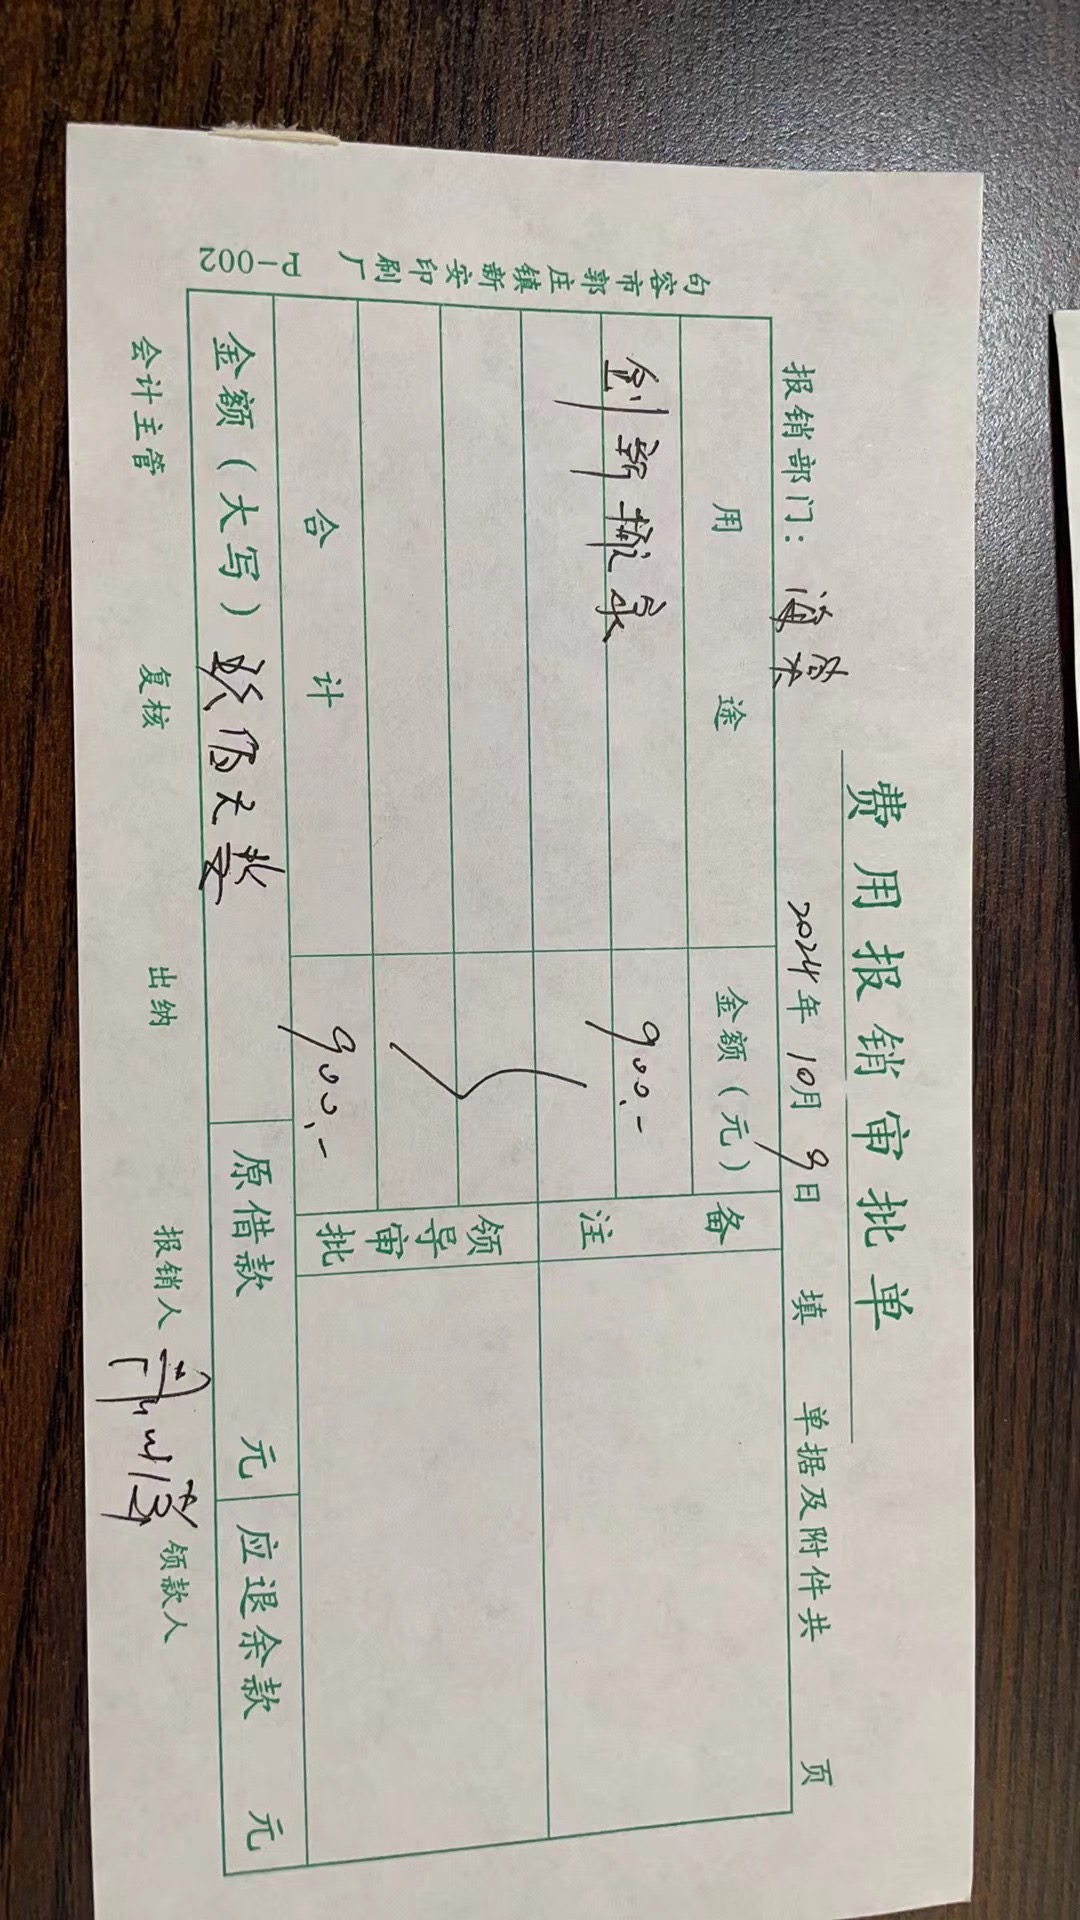 费用报销审批单
报销部门： 2024年10月9日 填 单据及附件共 页
用途 金额（元） 备注
创新 900.-
领导审批
合计 900.-
金额（大写） 玖佰元整 原借款 元 应退余款 元
会计主管 复核 出纳 报销人 领款人
句容市郭庄镇新安印刷厂 P-002